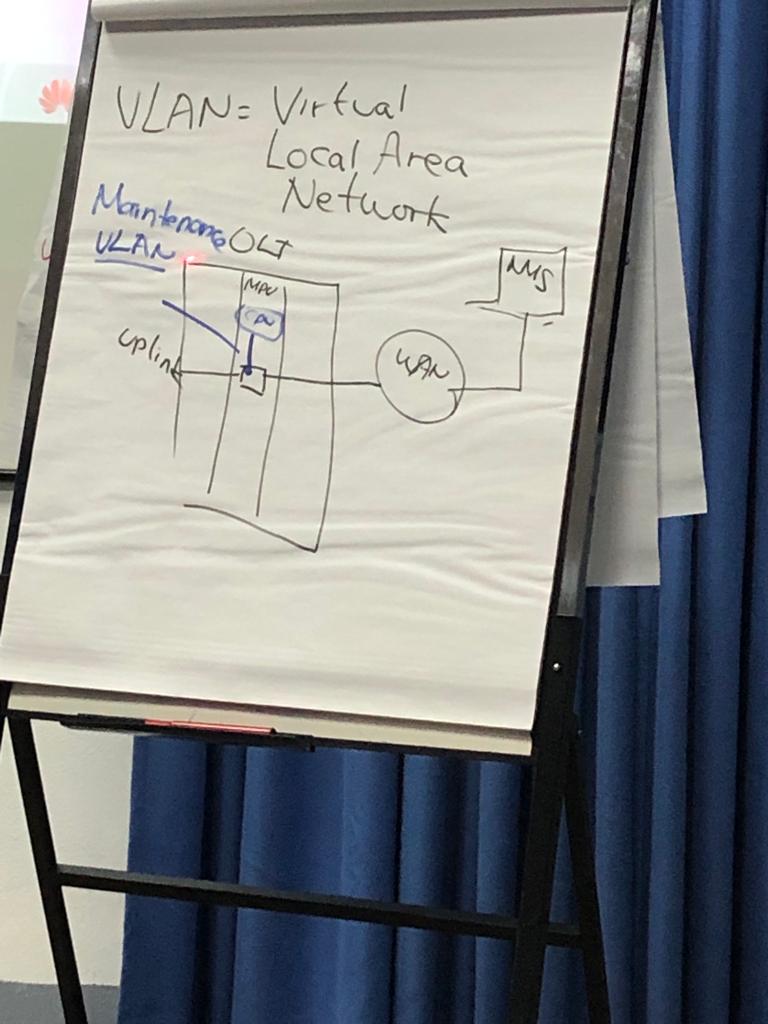 VLAN = Virtual
Local Area
Network
Maintenance
VLAN
OLT
MPU
CPU
NMS
uplink
WAN